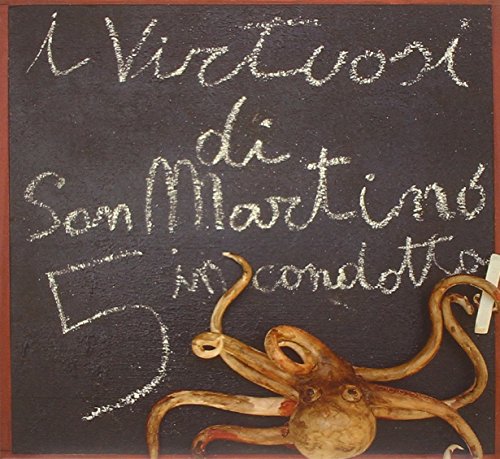 i Virtuosi
di
San Martino
5 in condotta